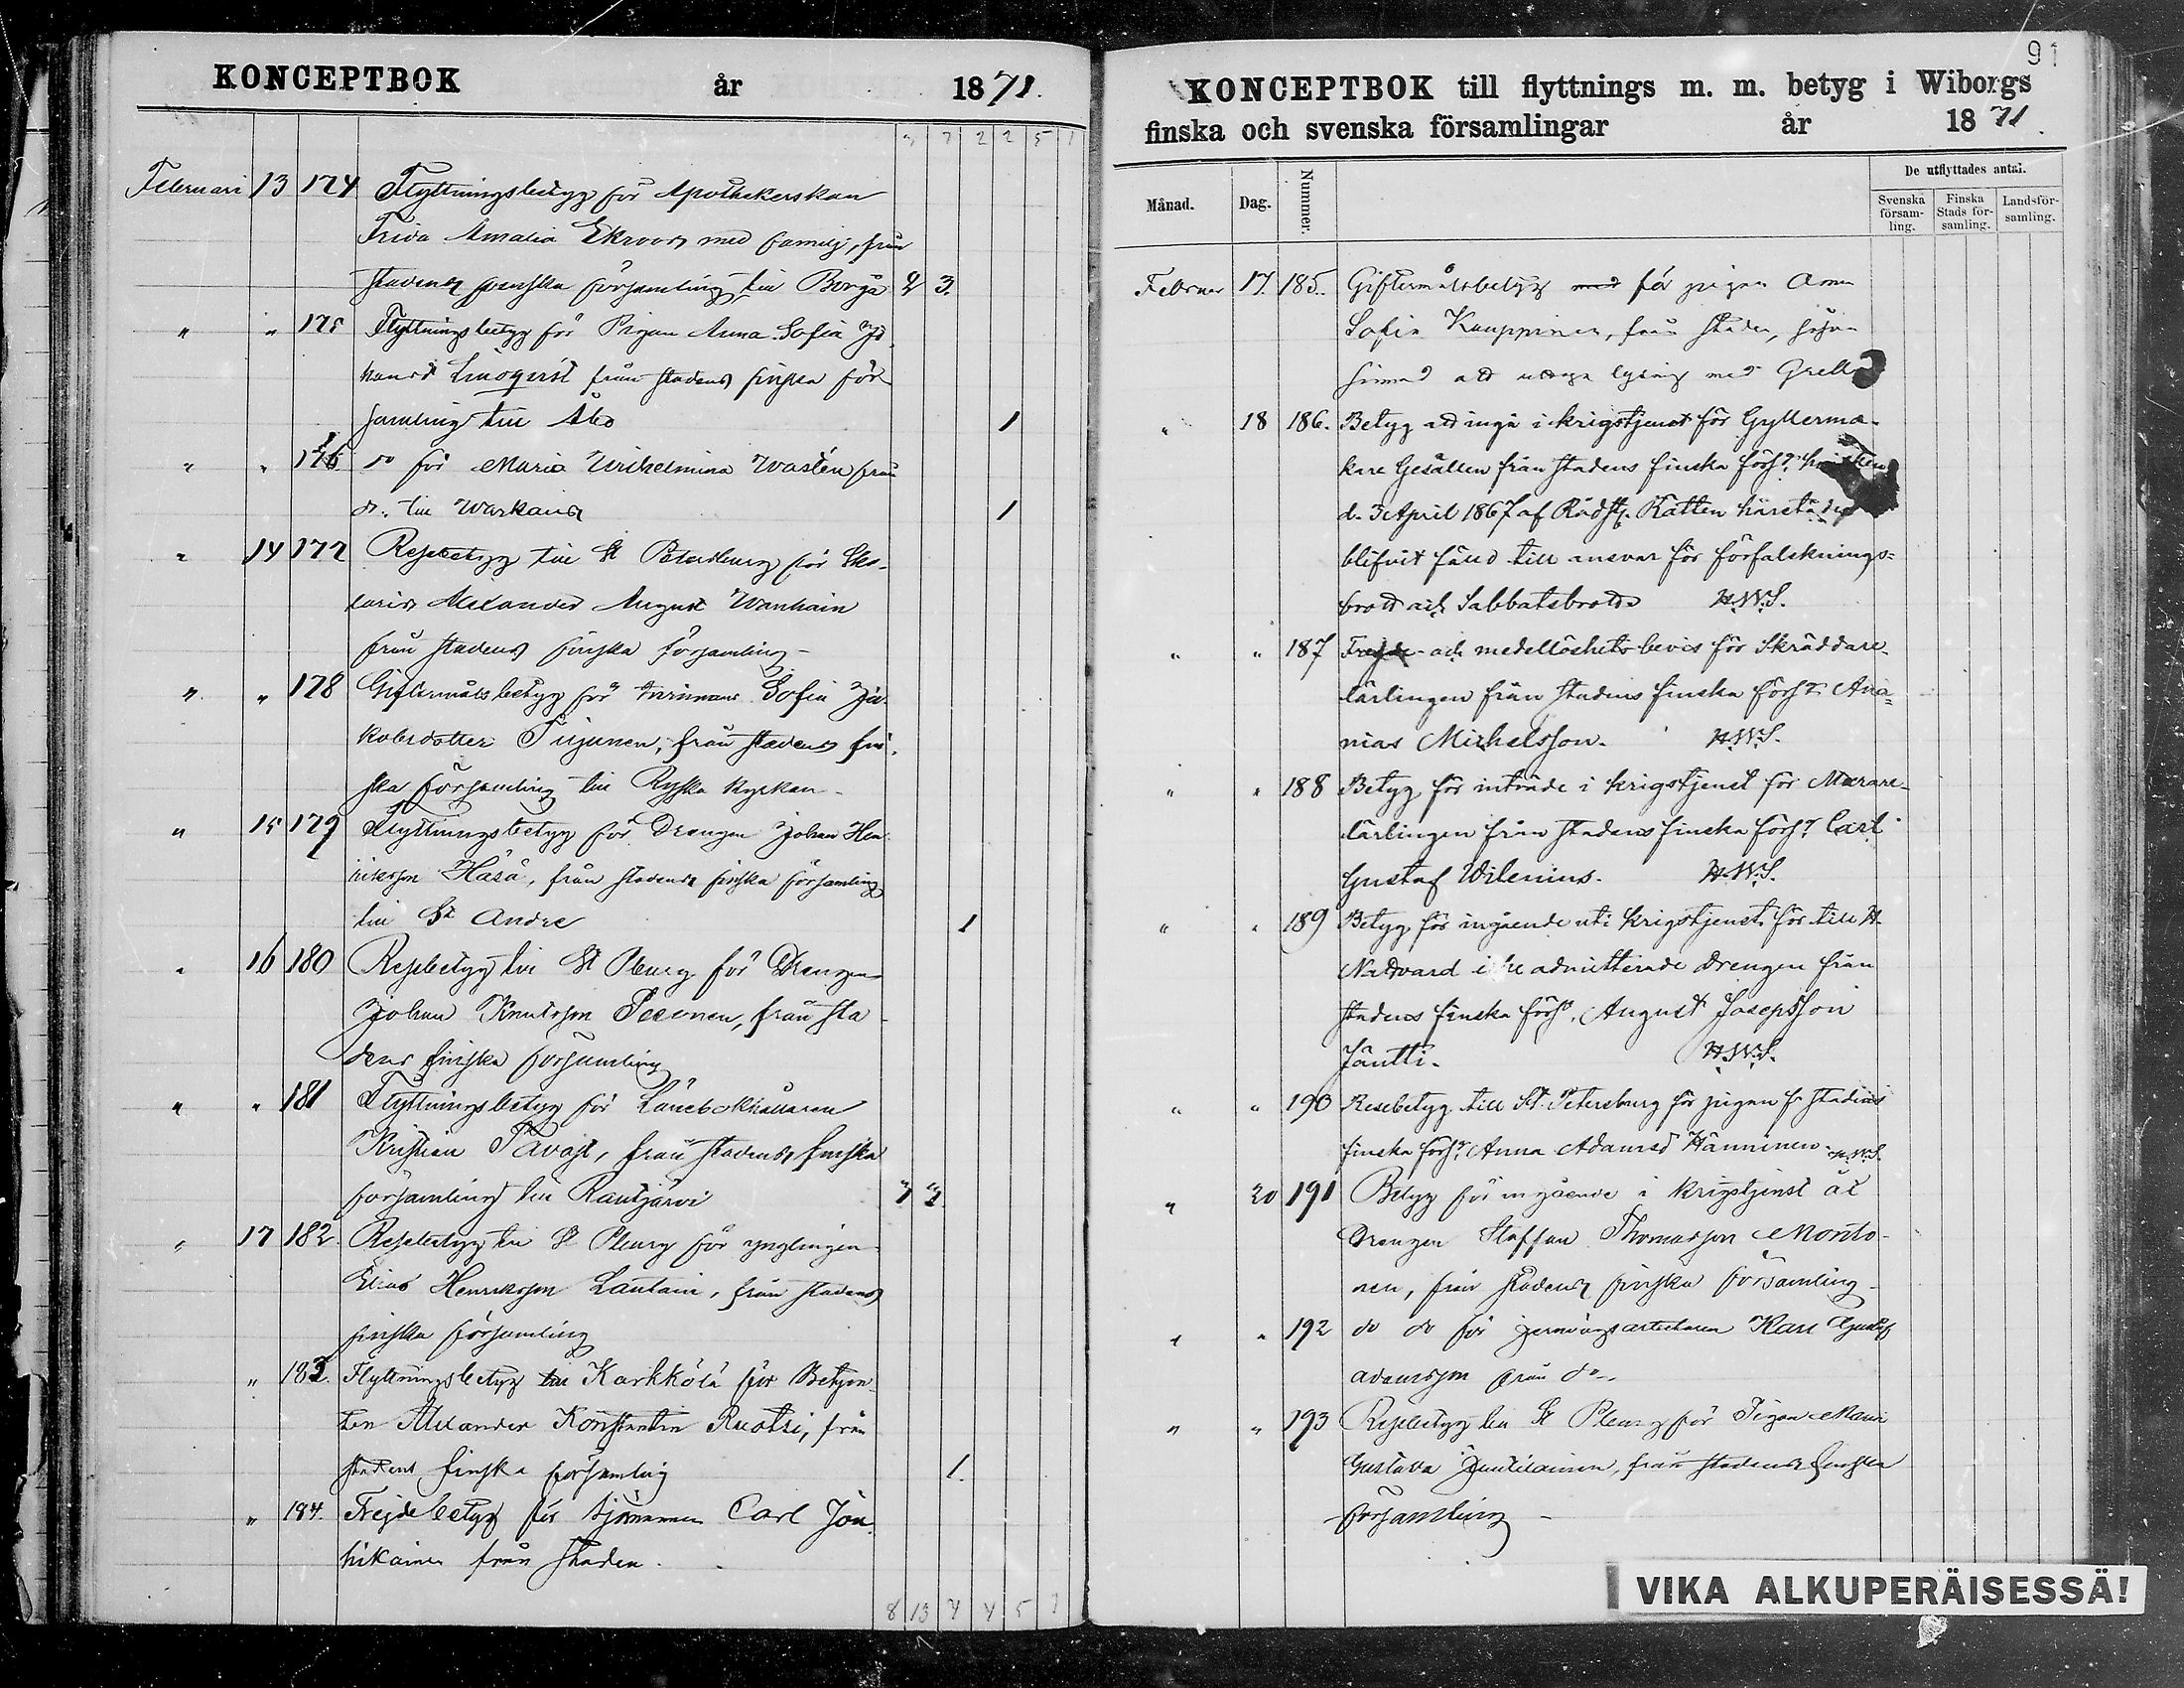 KONCEPTBOK år 1871.
3 7 2 2 5 1
Februari 13 174 Flyttningsbetyg för Apothekerskan
Frida Amalia Ekroos med familj, från
stadens svenska församling till Borgå 2 3.
" " 175 Flyttningsbetyg för Pigan Anna Sofia Jo
hansd Lindqvist från stadens finska för
samling till Åbo 1
" " 176 do för Maria Wilhelmina Wastén från
do. till Warkaus 1
" 14 177 Resebetyg till St Petersburg för
Alexander August Wanhain
från stadens finska församling
" " 178 Giftermålsbetyg för Sofia Ja
kobsdotter Tiijunen, från stadens fin
ska församling till Ryska kyrkan
" 15 179 Flyttningsbetyg för Drengen Johan Hen
riksson Häsä, från stadens finska församling
till St Andre 1
" 16 180 Resebetyg till St Pburg för Drengen
Johan Knutsson Pesonen, från sta
dens finska församling
" " 181 Flyttningsbetyg för
Kristian Tavast, från stadens finska
församling till Rautjärvi
" 17 182. Resebetyg till St Pburg för ynglingen
Elias Henriksson Lautain, från stadens
finska församling
" 183. Flyttningsbetyg till Karkkölä för Betjen
ten Alexander Konstantin Ruotsi, från
stadens finska församling 1.
" 184. Frejdebetyg för sjömannen Carl Jän
hikainen från staden.
8 13 4 4 5 1
91
KONCEPTBOK till flyttnings m. m. betyg i Wiborgs
finska och svenska församlingar år 1871.
Månad. Dag. Nummer. De utflyttades antal.
Svenska församling. Finska Stads församling. Landsförsamling.
Februar 17. 185. Giftermålsbetyg med för pigan Anna
Sofia Kauppinen, från staden,
att uttaga lysning med
" 18 186. Betyg att ingå i krigstjenst för Gyllerma-
kare Gesällen från stadens finska förs:
d. 3 April 1867 af Rådst. Rätten härstädes
blifvit fälld till ansvar för förfalsknings-
brott och Sabbatsbrott. H.W.S.
" " 187 Frejde- och medellöshets bevis för Skräddare-
lärlingen från stadens finska förs: Ana-
nias Michelsson. H.W.S.
" " 188 Betyg för inträde i krigstjenst för Murare-
lärlingen från stadens finska förs: Carl
Gustaf Wilenius. H.W.S.
" " 189 Betyg för ingående uti krigstjenst för till H.
Nattvard icke admitterade drengen från
stadens finska förs:, August Josepsson
Jäntti. H.W.S.
" " 190 Resebetyg till St. Petersburg för pigan fr stadens
finska förs: Anna Adamsd Hänninen. H.W.S.
" 20 191 Betyg för ingående i krigstjenst åt
Drengen Staffan Thomasson Monto-
nen, från stadens finska församling
" " 192 do do för jernvägsarbetaren Karl Gustaf
Adamsson från do.
" " 193 Resebetyg till St Pburg för Pigan Maria
Gustava Juutilainen, från stadens finska
församling
VIKA ALKUPERÄISESSÄ!